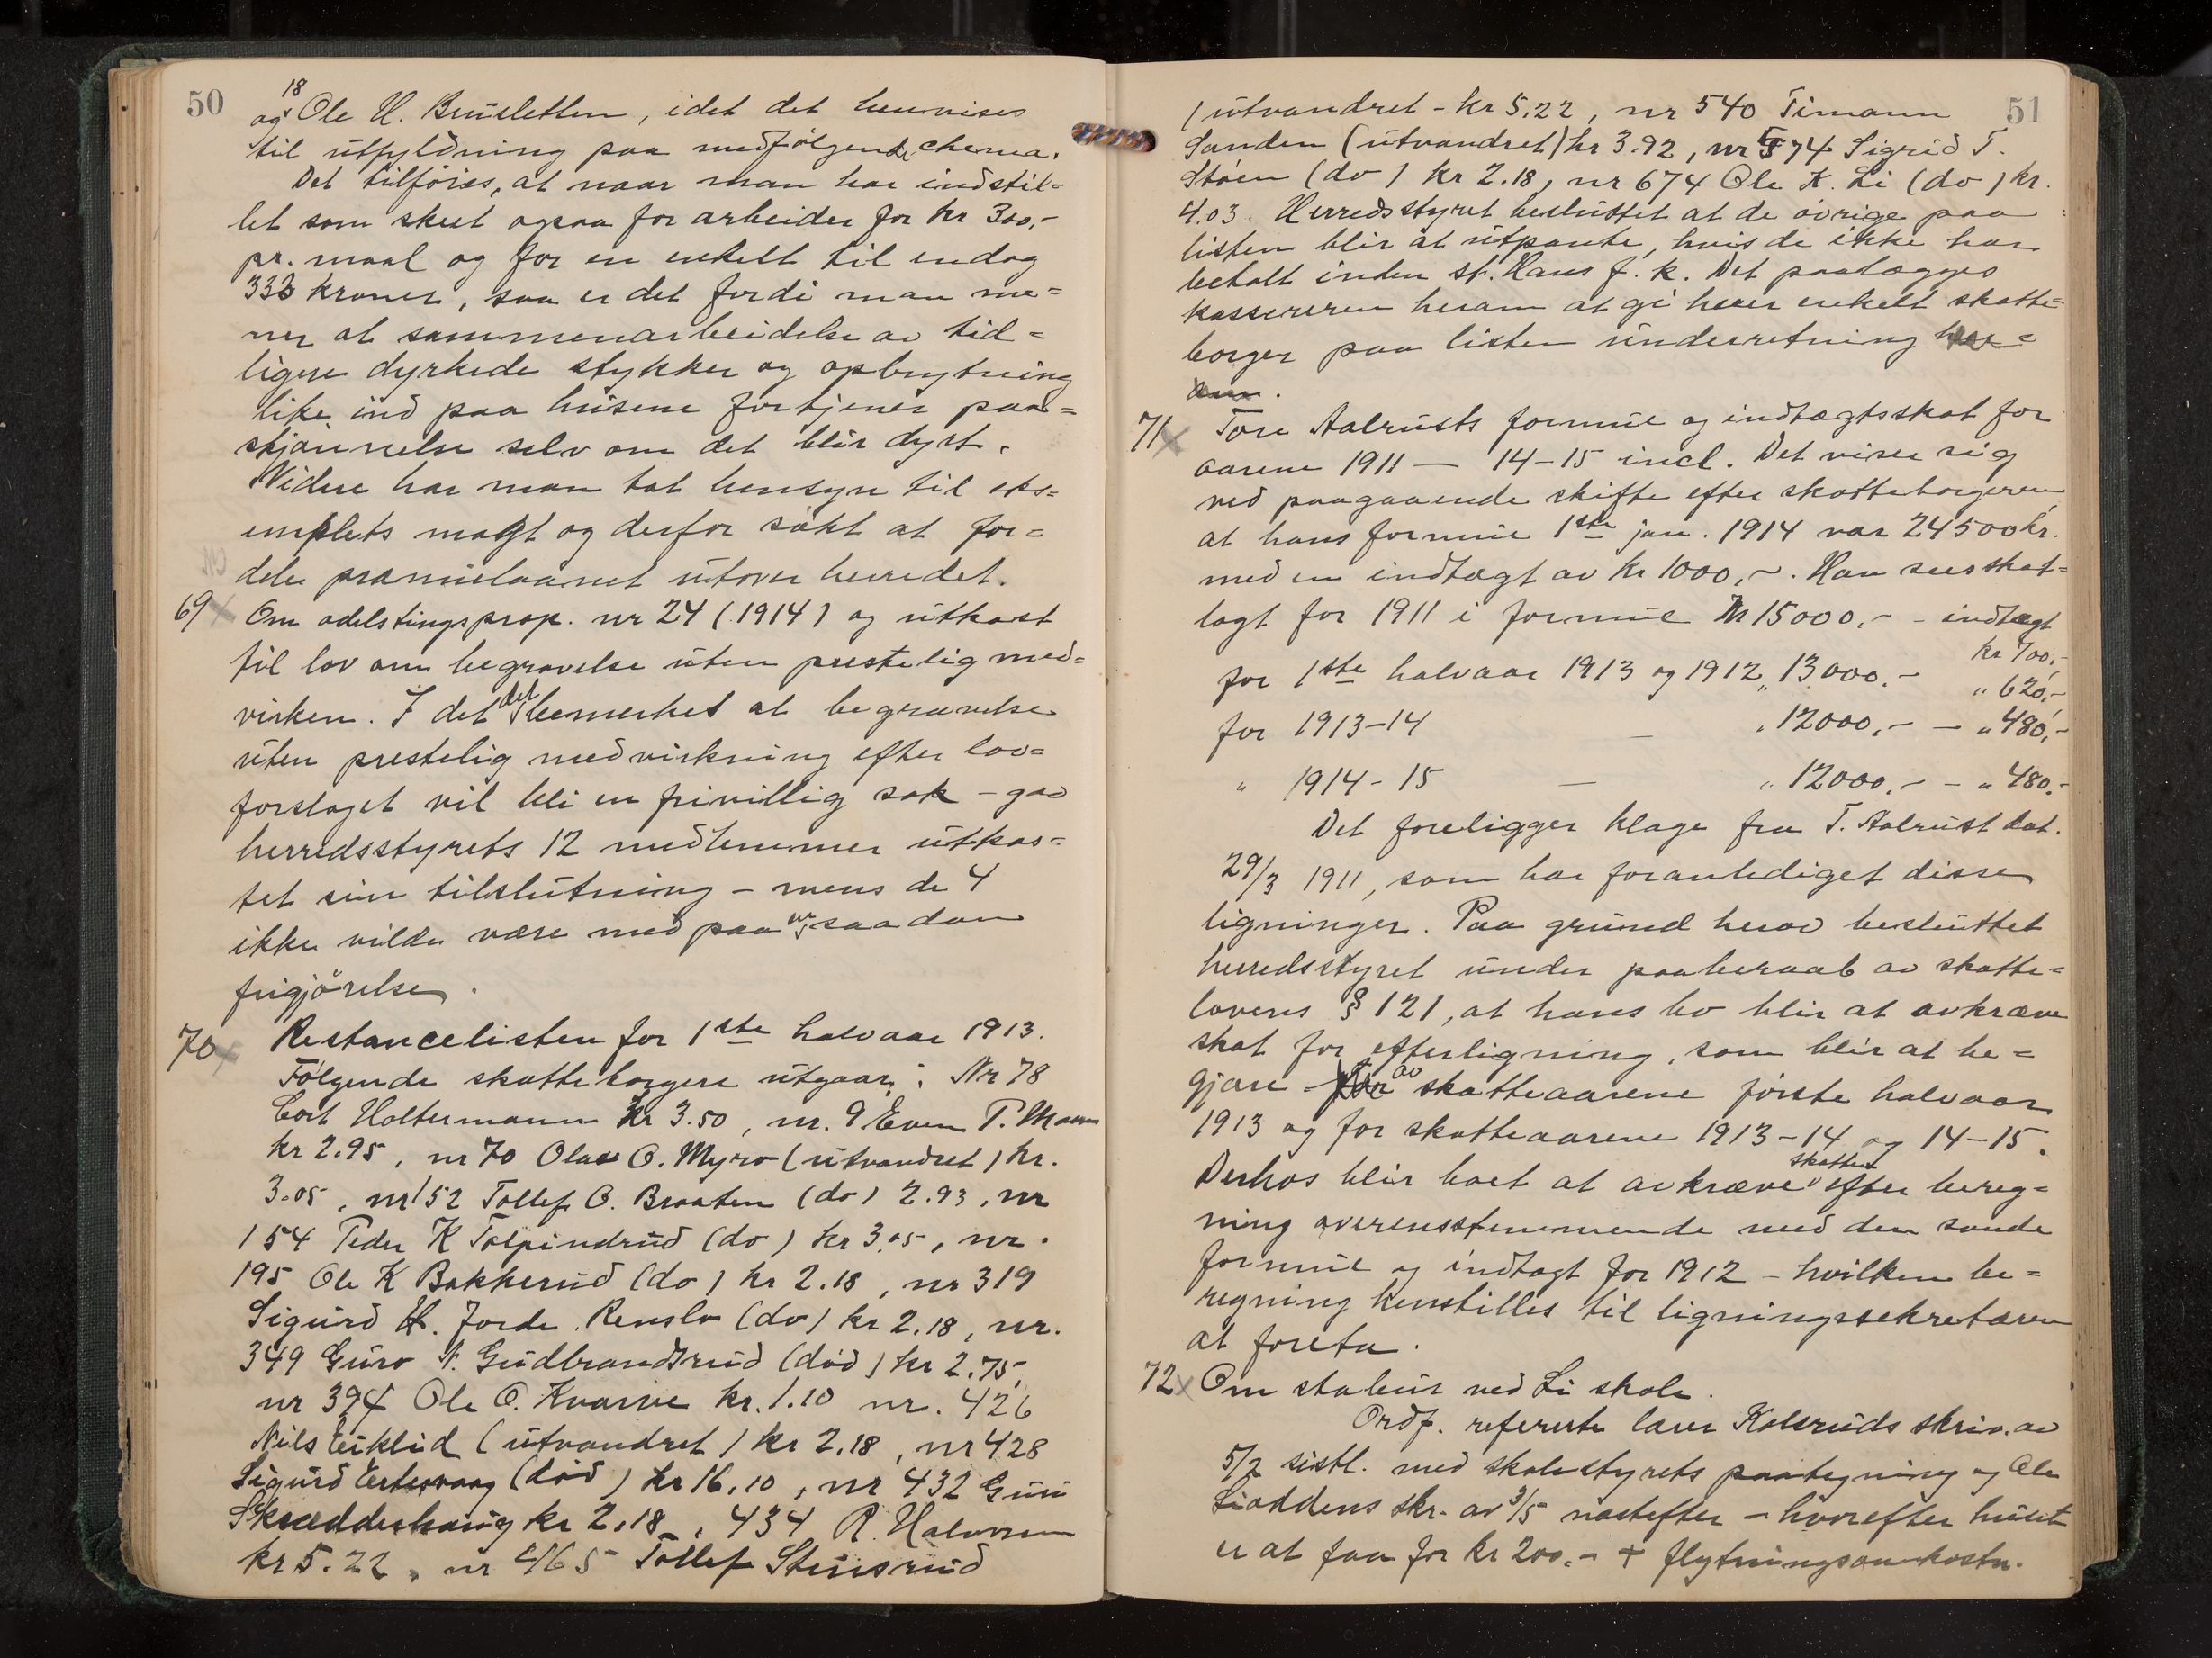 50
og 18 Ole H. Brusletten, idet det henvises
til utfyldning paa medfølgende chema.
Det tilføies, at naar man har indstil=
let som skeet ogsaa for arbeider for kr 300,-
pr. maal og for en enkelt til endog
333 kroner, saa er det fordi man me=
ner at sammenarbeidelse av tid=
ligere dyrkede stykker og opbrytning
like ind paa husene fortjener paa=
skjønnelse selv om det blir dyrt.
Videre har man tat hensyn til eks=
emplets magt og derfor søkt at for=
dele præmielaanet utover herredet.
69 Om odelstingsprop. nr 24 (1914) og utkast
til lov om begravelse uten prestelig med=
virken. I det det bemerket at begravelse
uten prestelig medvirkning efter lov=
forslaget vil bli en frivillig sak - gav
herredsstyrets 12 medlemmer utkas=
tet sin tilslutning - mens de 4
ikke vilde være med paa en saadan
frigjörelse.
70 Restancelisten for 1ste halvaar 1913.
Følgende skatteborgere utgaar: Nr 78
Cort Holtermann kr 3.50, nr. 9 Even P. Moen
kr 2.95, nr 70 Olav O. Myro (utvandret) kr.
3.05, nr 152 Tollef O. Braaten (do) 2.93, nr
154 Peder K Tolpindrud (do) kr 3.05, nr.
195 Ole K Bakkerud (do) kr 2.18, nr 319
Sigurd H. Jorde Renslo (do) kr 2.18, nr.
349 Guro N. Gudbrandsrud (død) kr 2.75,
nr 394 Ole O. Kvarve kr. 1.10 nr. 426
Nils Eiklid (utvandret) kr 2.18, nr 428
Sigurd Ertesvaag (død) kr 16.10, nr 432 Guri
Skrædderhaug kr 2.18, 434 R. Halvorsen
kr 5.22, nr 465 Tollef Stensrud
51
(utvandret - kr 5,22, nr 540 Timann
Sanden (utvandret) kr 3.92, nr 574 Sigrid T.
Støen (do) kr 2.18, nr 674 Ole K. Li (do) kr.
4.03. Herredsstyret besluttet at de øvrige paa
listen blir at utpante, hvis de ikke har
betalt inden st. Hans f. k. Det paalægges
kassereren herom at gi hver enkelt skatte=
borger paa listen underretning her=
om.
71 Tore Aalrusts formue og indtægtsskat for
aarene 1911 - 14-15 incl. Det viser sig
ved paagaaende skifte efter skatteborgeren,
at hans formue 1ste jan. 1914 var 24500 kr.
med en indtægt av kr 1000,-. Han sees skat=
lagt for 1911 i formue kr 15000.- - indtægt
kr 700.-
for 1ste halvaar 1913 og 1912 „ 13000.- „ 620,-
for 1913-14 — „ 12000,- — „ 480,-
„ 1914-15 — „ 12000.- - „ 480.-
Det foreligger klage fra T. Aalrust dat.
29/3 1911, som har foranlediget disse
ligninger. Paa grund herav besluttet
herredsstyret under paaberaab av skatte=
lovens § 121, at hans bo blir at avkræve
skat for efterligning, som blir at be=
gjøre for av skatteaarene første halvaar
1913 og for skatteaarene 1913-14 og 14-15.
Derhos blir boet at avkræve skatten efter bereg=
ning overensstemmende med den sande
formue og indtægt for 1912 - hvilken be=
regning henstilles til ligningssekretæren
at foreta.
72 Om stabur ved Li skole.
Ordf. refererte lærer Kolsruds skriv. av
5/2 sistl. med skolestyrets paategning og Ole
Lioddens skr. av 3/5 næstefter - hvorefter huset
er at faa for kr 200.- + flytningsomkostn.